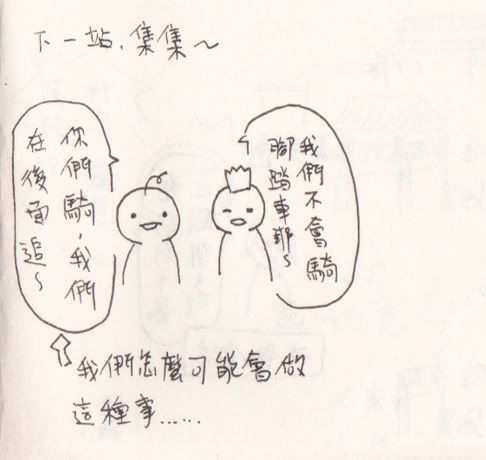 下一站,集集~
我們不會騎
腳踏車耶~
你們騎,我們
在後面追~
我們怎麼可能會做
這種事......